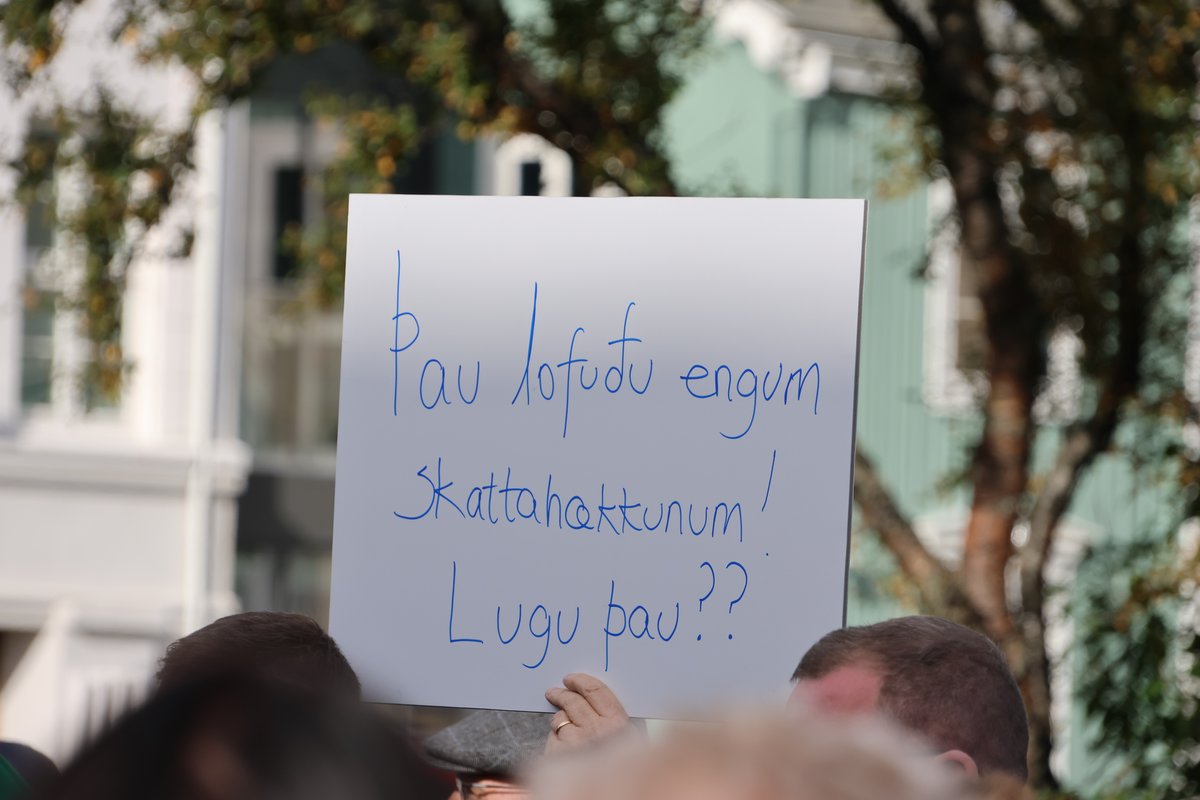 Þau lofuðu engum
skattahækkunum!
Lugu þau??